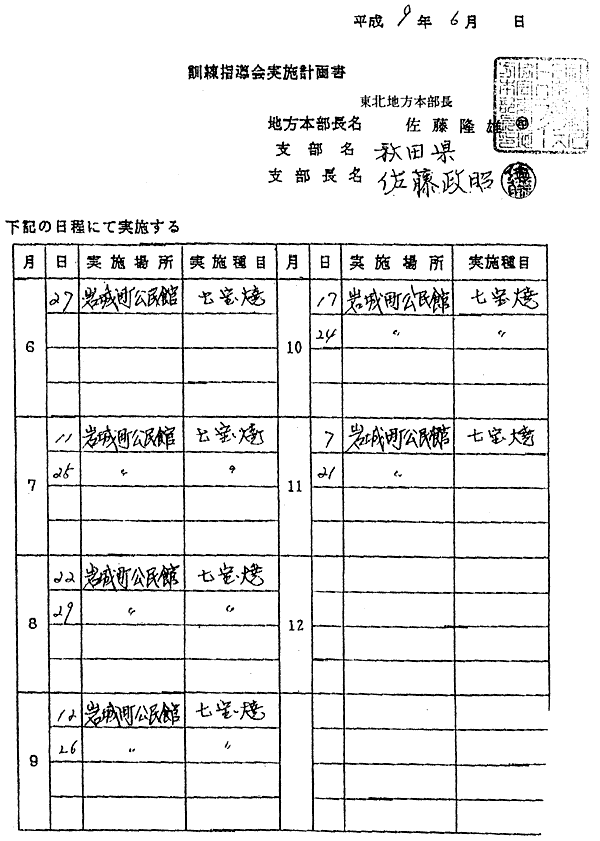 平成 9 年 6 月 日
訓練指導会実施計画書
東北地方本部長
地方本部長名 佐藤隆雄 ㊞
支部名 秋田県
支部長名 佐藤政昭
下記の日程にて実施する
月 日 実施場所 実施種目 月 日 実施場所 実施種目
6 27 岩城町公民館 七宝焼 10 17 岩城町公民館 七宝焼
24 〃 〃
7 11 岩城町公民館 七宝焼 11 7 岩城町公民館 七宝焼
25 〃 〃 21 〃
8 22 岩城町公民館 七宝焼 12
29 〃 〃
9 12 岩城町公民館 七宝焼
26 〃 〃